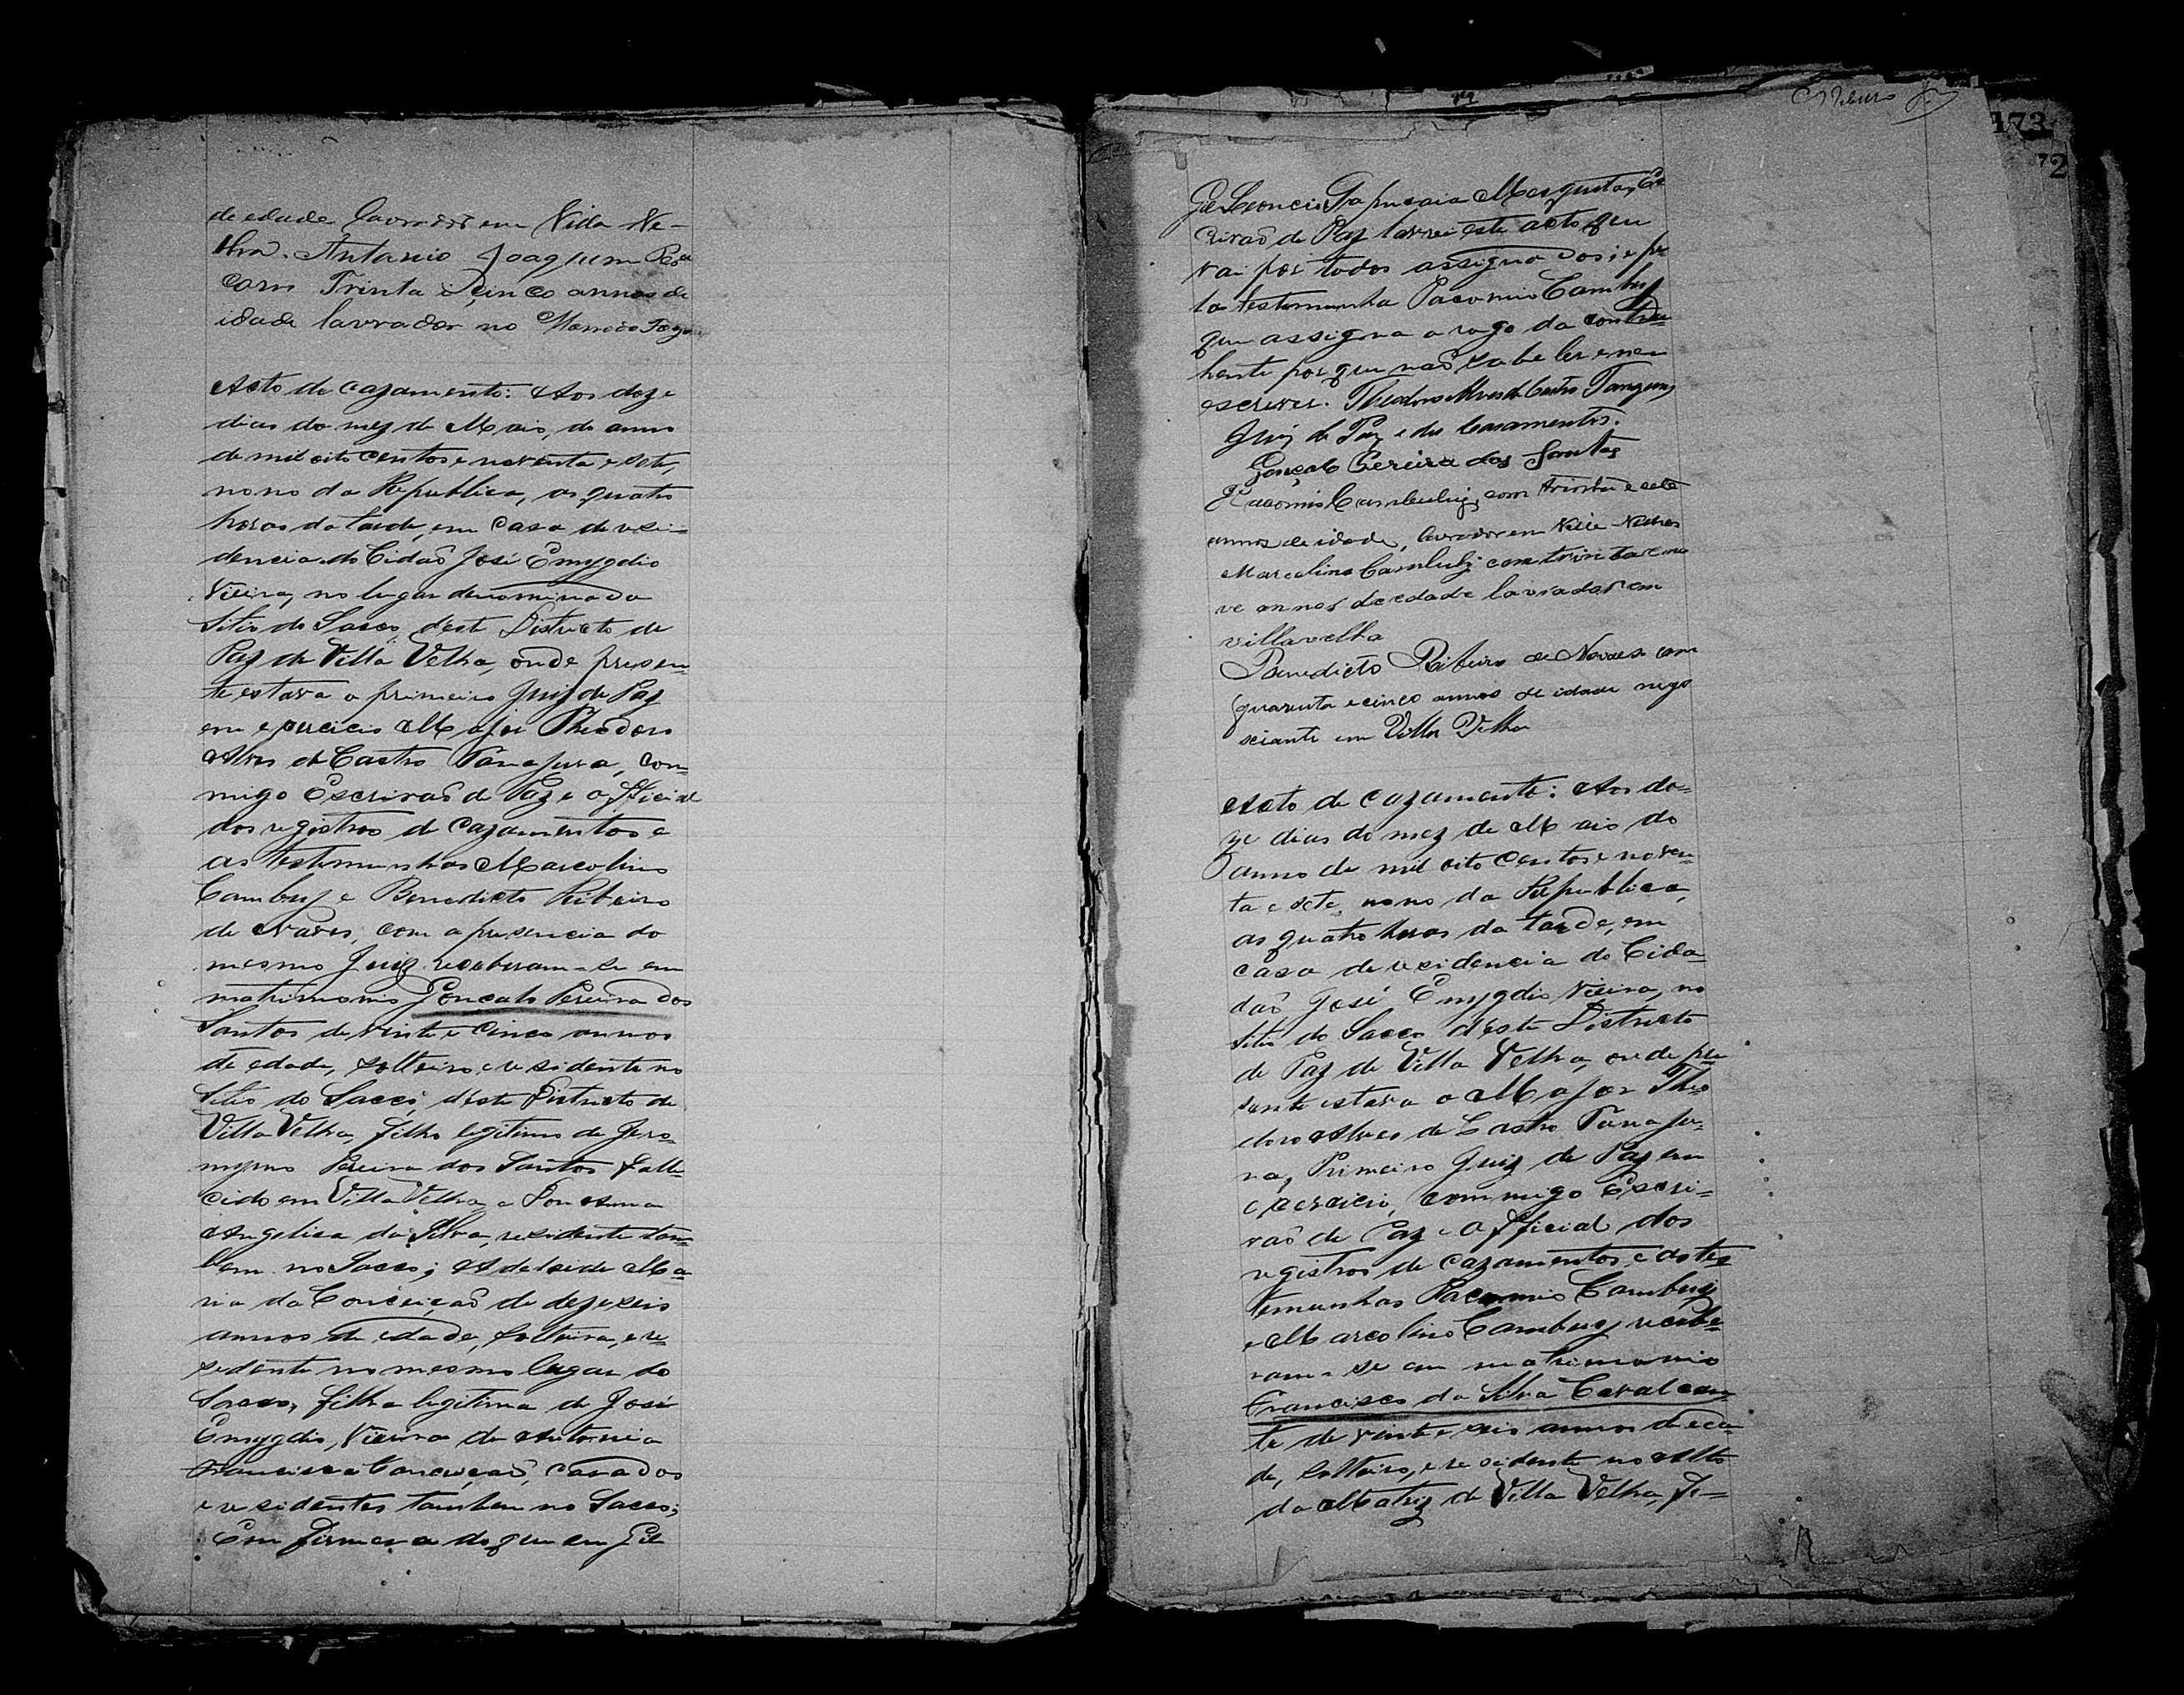 de edade lavrador em Villa Ve-
lha. Antonio Joaquim
com Trinta e cinco annos de
idade lavrador no
Acto de cazamento: Aos doze
dias do mez de Maio, do anno
de mil oito centos e noventa e sete,
nono da Republica, as quatro
horas da tarde, em casa de resi-
dencia do Cidaõ José Emygdio
Vieira, no lugar denominado
Sitio do Sacco, d'est Districto de
Paz de Villa Velha, onde presen-
te estava o primeiro Juiz de Paz
em exercicio Major Theodoro
Alves de Castro Tanajura, com-
migo Escrivaõ de Paz e Official
dos registros de Cazamentos e
as testemunhas Marcolino
Cambuy e Benedicto Ribeiro
de Naves, com a presencia do
mesmo Juiz receberam-se em
matrimonio Gonçalo Pereira dos
Santos de vinte e cinco annos
de edade, solteiro, e residente no
Sitio do Sacco, d'este Districto de
Villa Velha, filho legitimo de Jero-
nymo Pereira dos Santos falle-
cido em Villa Velha, e
Angelica da Silva, residente tam-
bem no Sacco; Adelaide Ma-
ria da Conceiçaõ de dezeseis
annos de edade, solteira, e re-
sidente no mesmo lugar do
Sacco, filha legitima de José
Emygdio Vieira de Antonia
Francisca Conceiçaõ, casados
e residentes tambem no Sacco;
Em firmeza do que eu Gil
173
72
Gil Leoncio Mesquita, Es
crivaõ de Paz lavrei este acto que
vai por todos assignados; e pe
la testemunha Pacomio Cambuy
que assigna a rogo da contra-
hente por que naõ sabe ler e nem
escrever. Theodoro Alves de Castro Tanajura
Juiz de Paz e dos Casamentos.
Gonçalo Pereira dos Santos
Pacomio Cambuhy, com trinta e sete
annos de idade, lavrador em Villa-Velha
Marcolino Cambuhy com trinta e no
ve annos de edade lavrador em
villavelha
Benedicto Ribeiro de Novaes com
quarenta e cinco annos de idade nego
sciante em Villa Velha
Acto de cazamento: Aos do-
ze dias do mez de Maio do
anno de mil oito centos e noven-
ta e sete, nono da Republica,
as quatro horas da tarde, em
casa de residencia do Cida-
daõ José Emygdio Vieira, no
Sitio do Sacco d'este Districto
de Paz de Villa Velha, onde pre-
sente estava o Major Theo-
doro Alves de Castro Tanaju-
ra, Primeiro Juiz de Paz em
exercicio, commigo Escri-
vaõ de Paz e Official dos
registros de cazamentos, e as tes-
temunhas Pacomio Cambuy
e Marcolino Cambuy recebe-
ram-se em matrimonio
Francisco da Silva Cavalcan-
te de vinte e seis annos de eda-
de, solteiro, e residente no Alto
da Matriz de Villa Velha, fi-